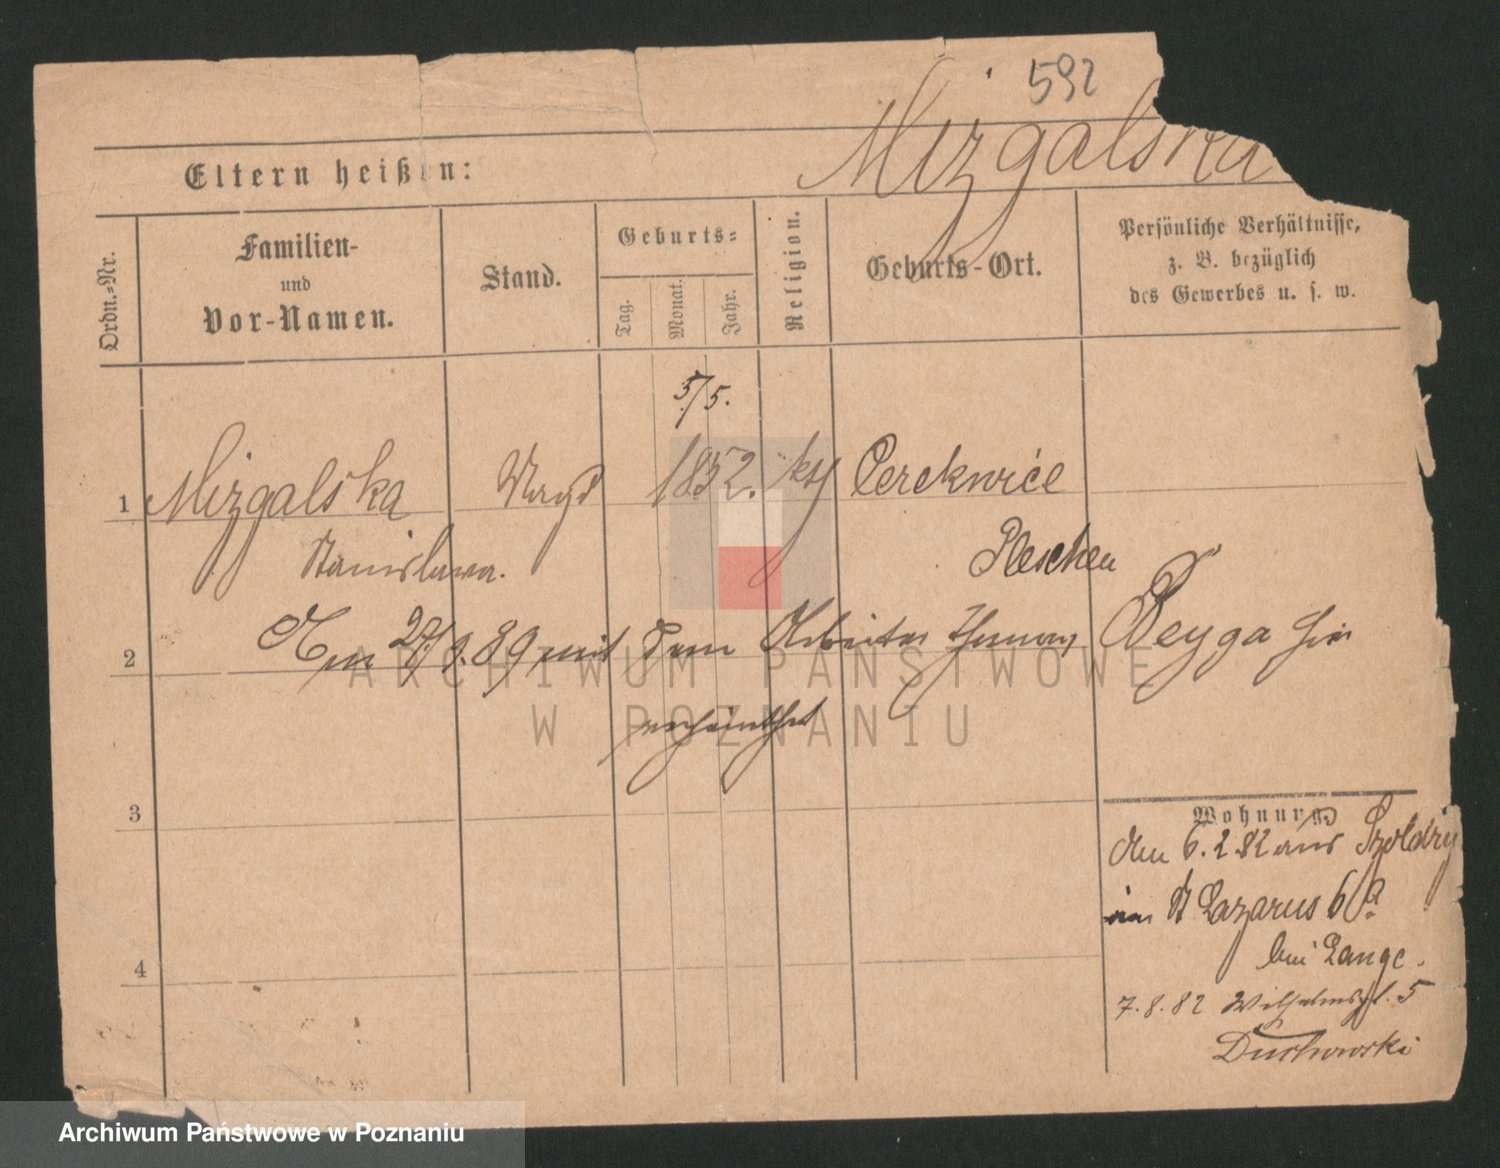 592
Mizgalska
Eltern heißen:
Ordn.-Nr.
Familien-
und
Vor-Namen.
Stand.
Geburts-
Tag.
Monat.
Jahr.
Religion.
Geburts-Ort.
Persönliche Verhältnisse,
z. B. bezüglich
des Gewerbes u. s. w.
5/5.
1 Mizgalska Magd 1852. kth Cerekwice
Stanislawa. Pleschen
2 Am 27/9.89 mit dem Arbeiter Thomas Deyga hier
verheirathet
3
Wohnung
den 6.2.82 aus Szoldry
in St Lazarus 6a
bei Lange.
4
7.8.82 Wilhelmspl. 5
Duchowski
ARCHIWUM PAŃSTWOWE
W POZNANIU
Archiwum Państwowe w Poznaniu